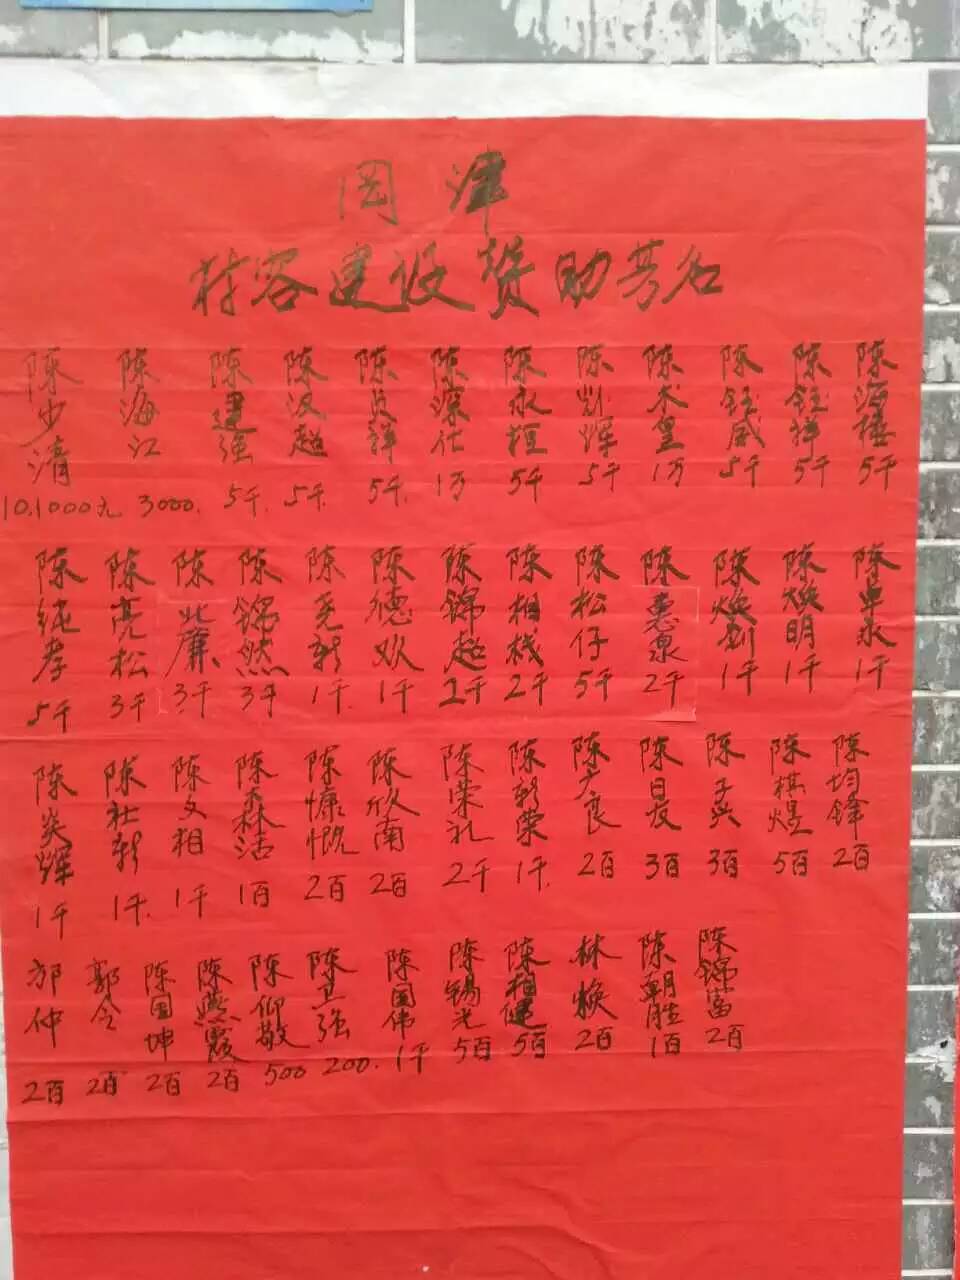 岡津
村容建设赞助芳名
陈少清 陈海江 陈建强 陈汉超 陈贞祥 陈深仕 陈永桓 陈凯辉 陈木皇 陈钰威 陈钰祥 陈海禧
10.1000元 3000. 5千. 5千. 5千. 1万 5千 5千 1万 5千 5千 5千
陈纯孝 陈亮松 陈兆廉 陈锦然 陈尧新 陈德欢 陈锦超 陈相栈 陈松仔 陈惠泉 陈焕钊 陈焕明 陈卓永
5千 3千 3千 3千 1千 1千 2千 2千 5千 2千 1千 1千 1千
陈炎辉 陈社新 陈文相 陈森活 陈慷慨 陈欣南 陈荣礼 陈新荣 陈广良 陈日长 陈子兴 陈棋煜 陈均锋
1千 1千. 1千 1百 2百 2百 2千 1千. 2百 3百 3百 5百 2百
邝仲 郭令 陈国坤 陈燕霞 陈仰敬 陈卫强 陈国伟 陈锡光 陈柏健 林焕 陈朝胜 陈锦富
2百 2百 2百 2百 500 200. 1千 5百 5百 2百 1百 2百